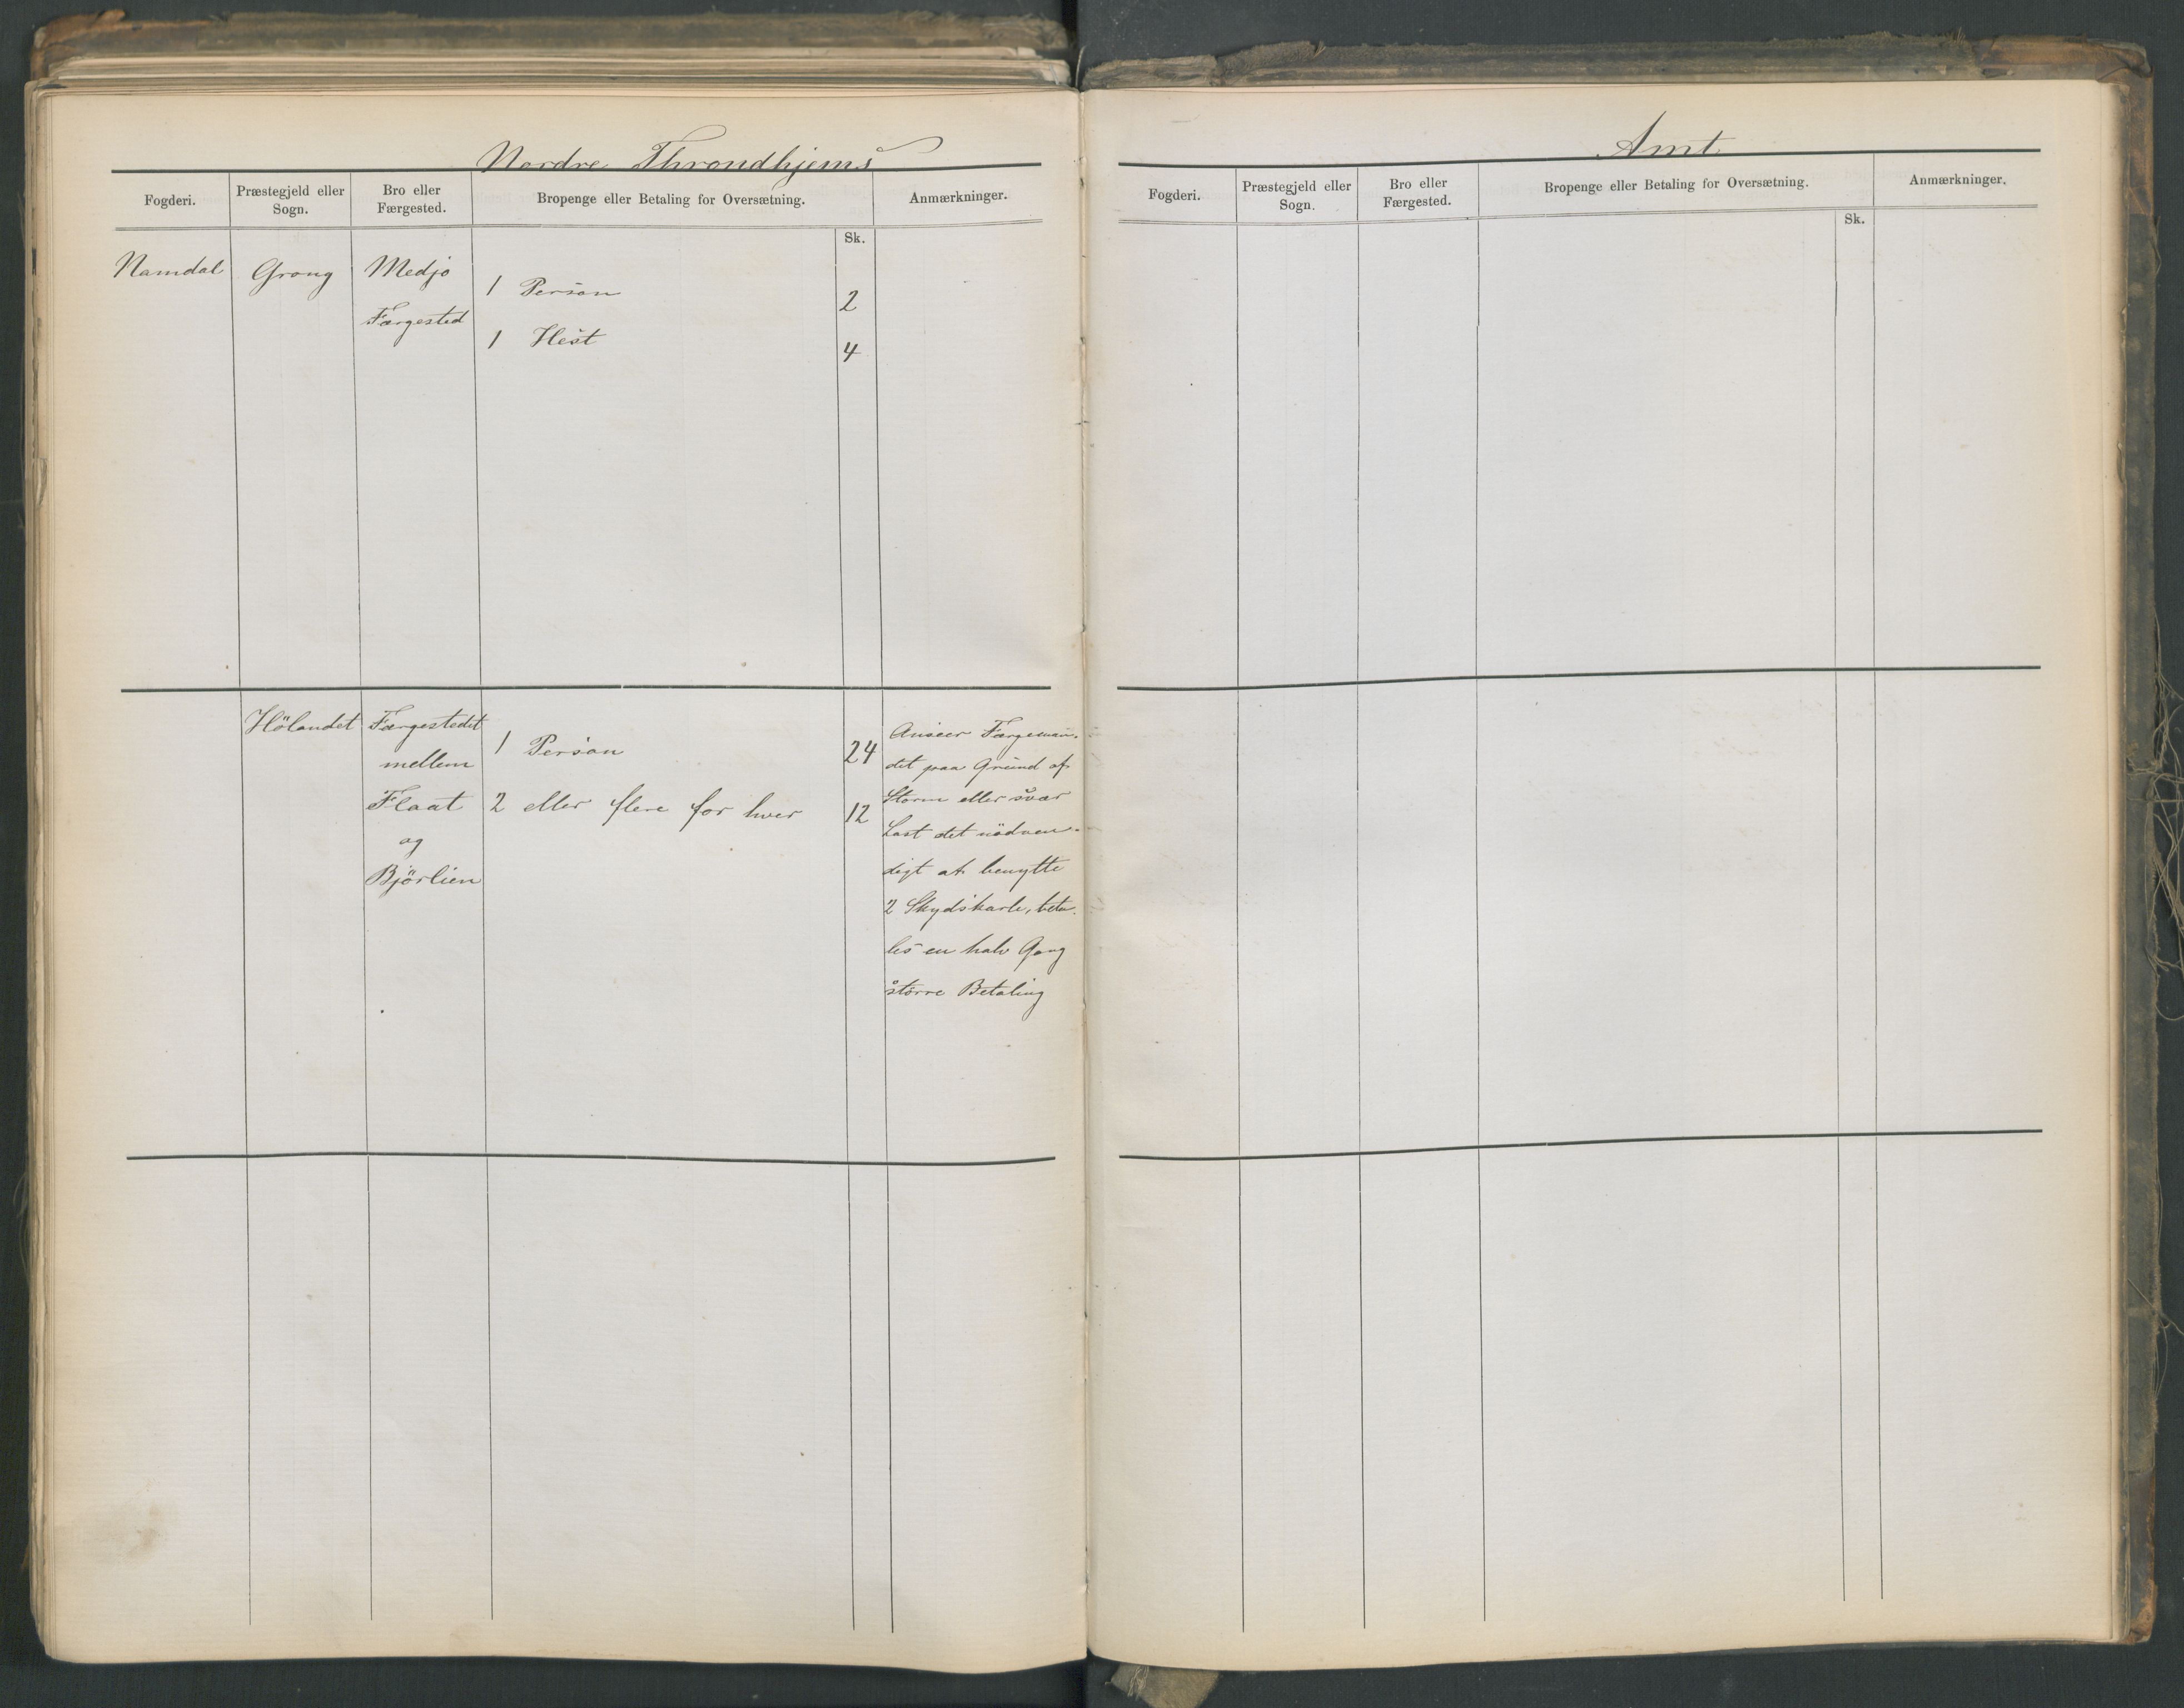 Nordre Throndhjems
Fogderi.
Præstegjeld eller
Sogn.
Bro eller
Færgested.
Bropenge eller Betaling for Oversætning.
Anmærkninger.
Sk.
Namdal
Grong
Medjo
Færgested
1 Person 2
1 Hest 4
Hölandet
Færgestedet
mellem
Flaat
og
Björlien
1 Person 24
2 eller flere for hver 12
Anseer Færgeman-
det paa Grund af
Storm eller svær
Last det nödven-
digt at benytte
2 Skydskarle, beta-
les en halv Gang
större Betaling
Amt
Fogderi.
Præstegjeld eller
Sogn.
Bro eller
Færgested.
Bropenge eller Betaling for Oversætning.
Anmærkninger.
Sk.